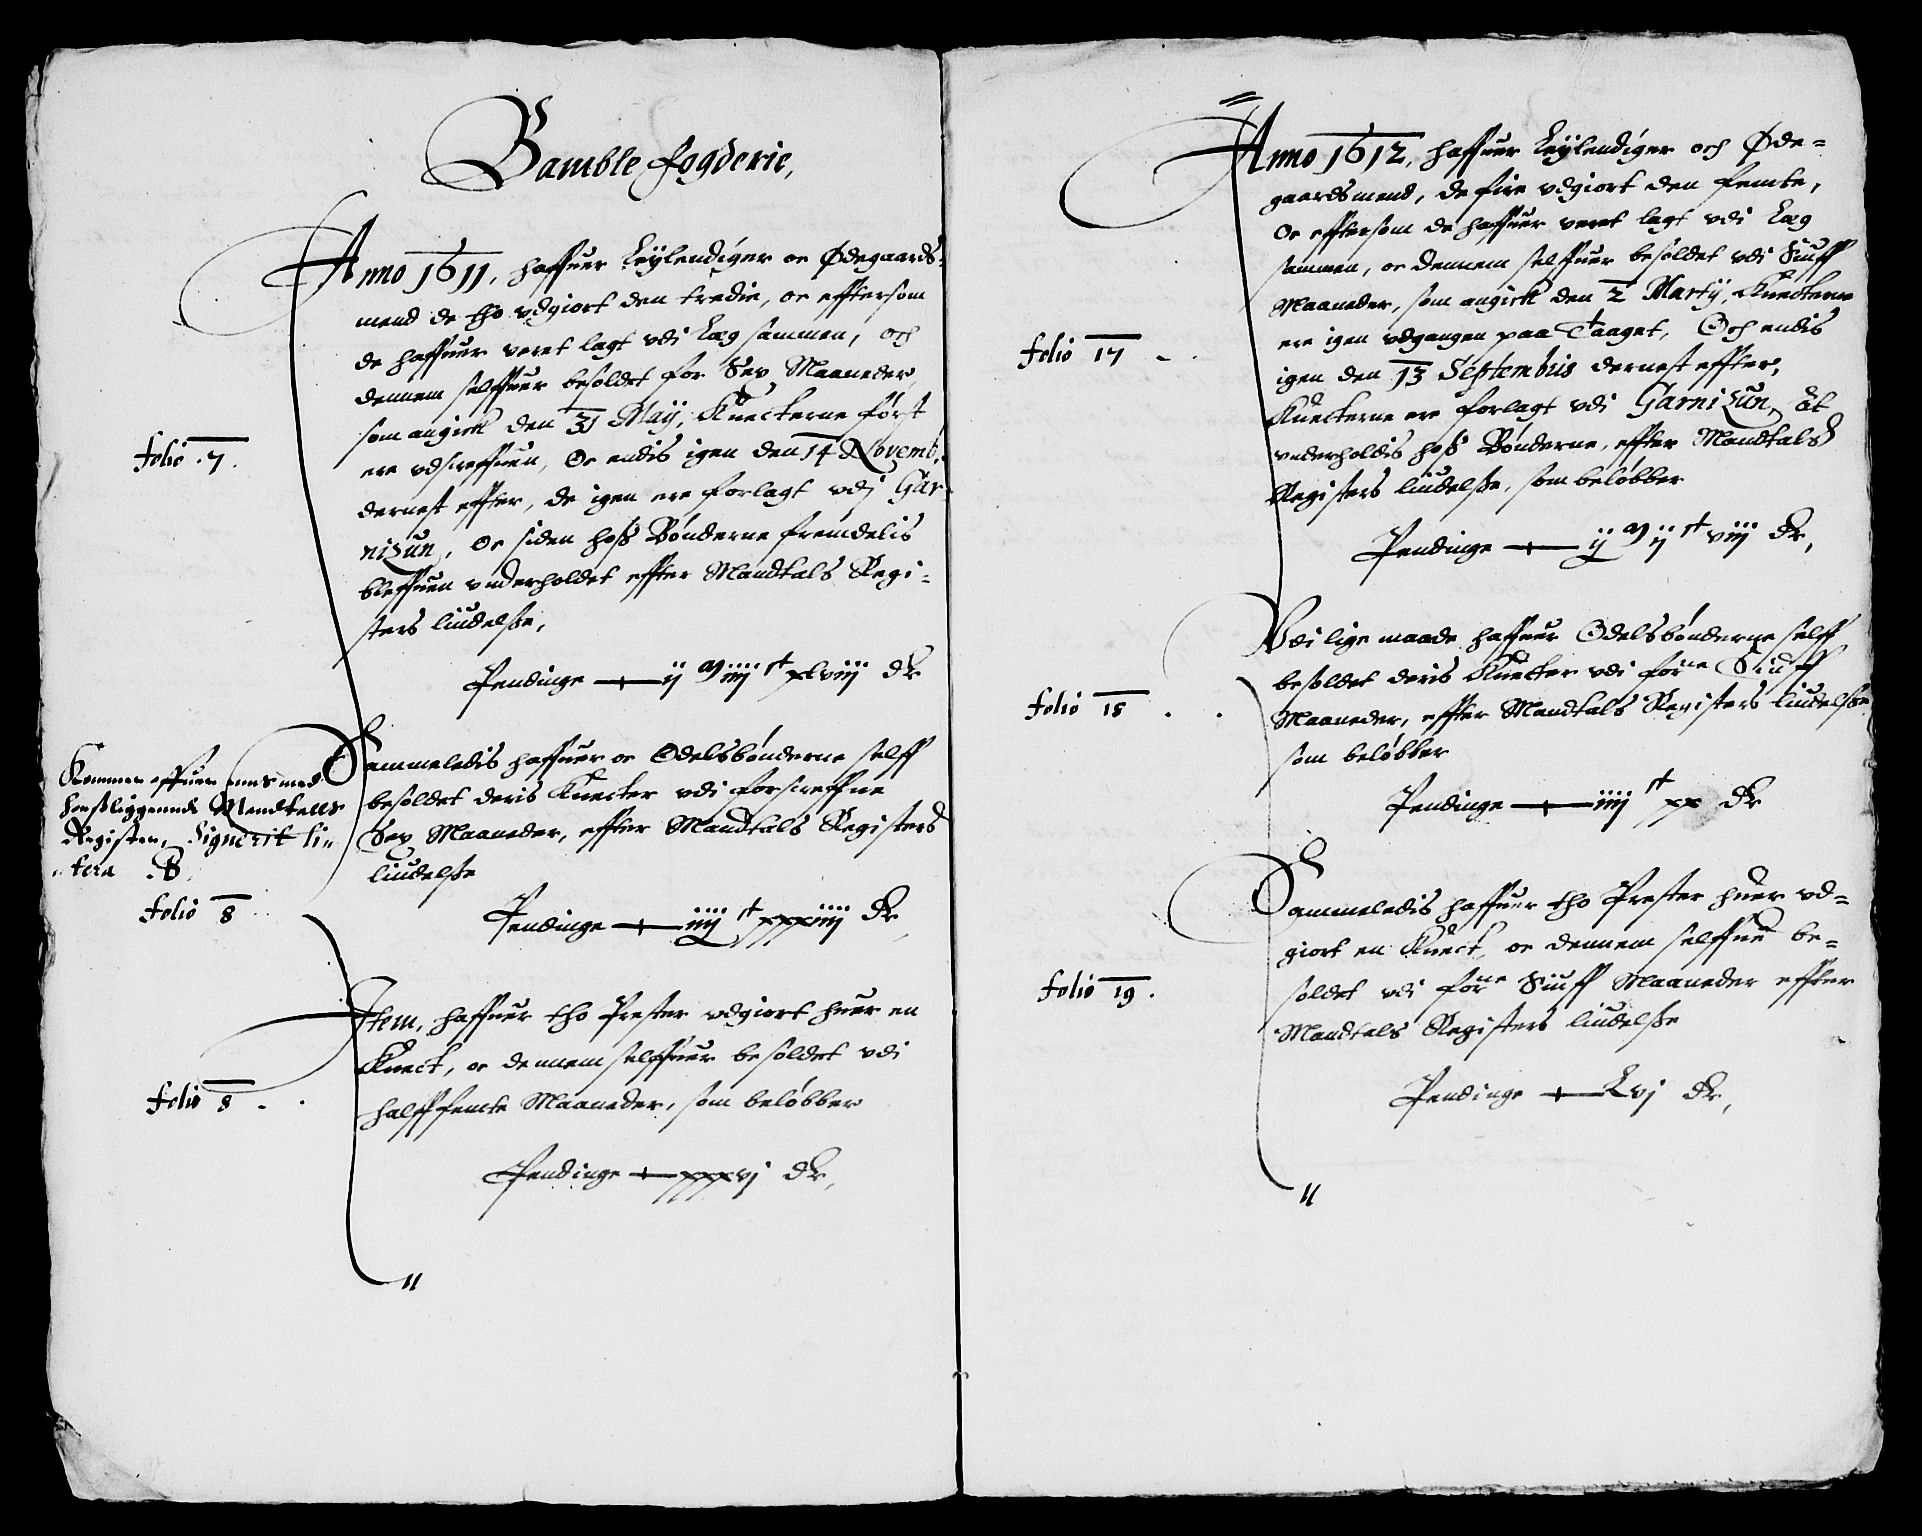 Bamble fogderie,
Anno 1611, haffuer Leÿlendiger oc Ødegaards-
mend de tho vdgiort den tredie, oc efftersom
de haffuer veret lagt vdi Læg sammen, och
dennem selffuer besoldet for Sex Maaneder,
som angick den 31 Maÿ, Kneckterne først
ere vdscreffuen, Oc endis igen den 14 Novemb.
dernest effter, de igen ere forlagt vdj Gar-
nizun, Oc siden hoß Bønderne fremdelis
bleffuen vnderholdet effter Mandtals Regi-
sters liudelße,
Pendinge — ij M iiij Ct xlviij dr
folio .7.
Sammeledis haffuer oc Odelsbønderne selff
besoldet deris Knecter vdi forscreffne
Sex Maaneder, effter Mandtals Registers
liudelße
Pendinge — iiij Ct xxxiiij dr,
Kommer offuer eens med
hosliggennde Mandtals
Register, Signerit li-
tera B.
folio 8
Item, haffuer tho Prester vdgiort huer en
Knect, oc dennem selffuer besoldet vdi
halfffemte Maaneder, som beløbber
Pendinge — xxxvj dr,
folio 8
Anno 1612, haffuer Leÿlendiger och Øde-
gaardsmend, de fire vdgiort den femte,
Oc efftersom de haffuer veret lagt vdi Læg
sammen, oc dennem selffuer besoldet vdi Siuff
Maaneder, som angick den 2 Martÿ, Knecterne
ere igen vdgangen paa Taaget, Och endis
igen den 13 Septembris dernest effter,
Knecterne ere forlagt vdi Garnizun, at
vnderholdis hoß Bønderne, effter Mandtals
Registers liudelße, som beløbber
Pendinge — ij M ij Ct viij dr,
folio 17
Vdi lige maade haffuer Odelsbønderne selff
besoldet deris Knecter vdi forne Siuff
Maaneder, effter Mandtals Registers liudelße
som beløbber
Pendinge — iiij Ct xx dr
folio 18
Sammeledis haffuer tho Prester huer vd-
giort en Knect, oc dennem selffue be-
soldet vdi forne Siuff Maaneder effter
Mandtals Registers liudelße
Pendinge — Lvj dr,
folio 19.